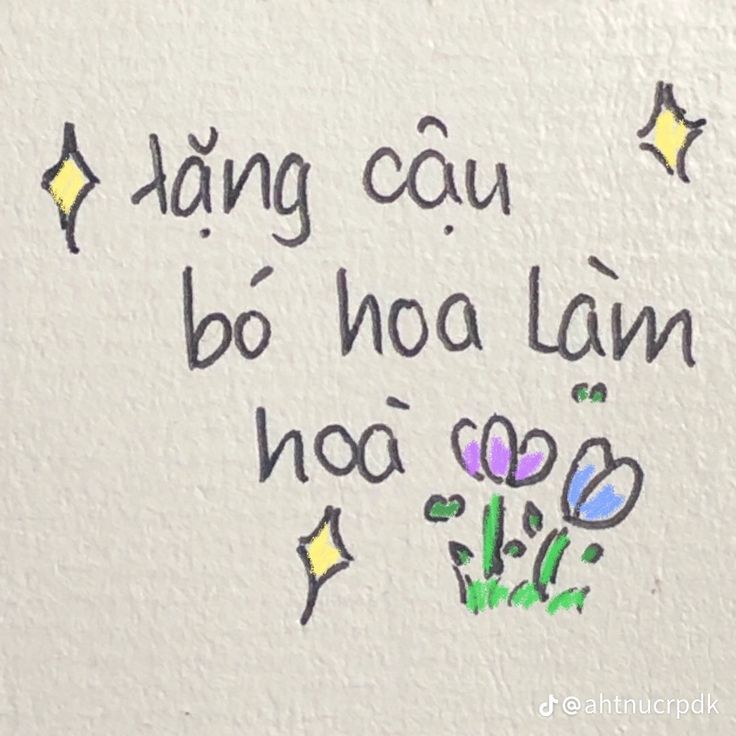 tặng cậu
bó hoa làm
hoà
@ahtnucrpdk